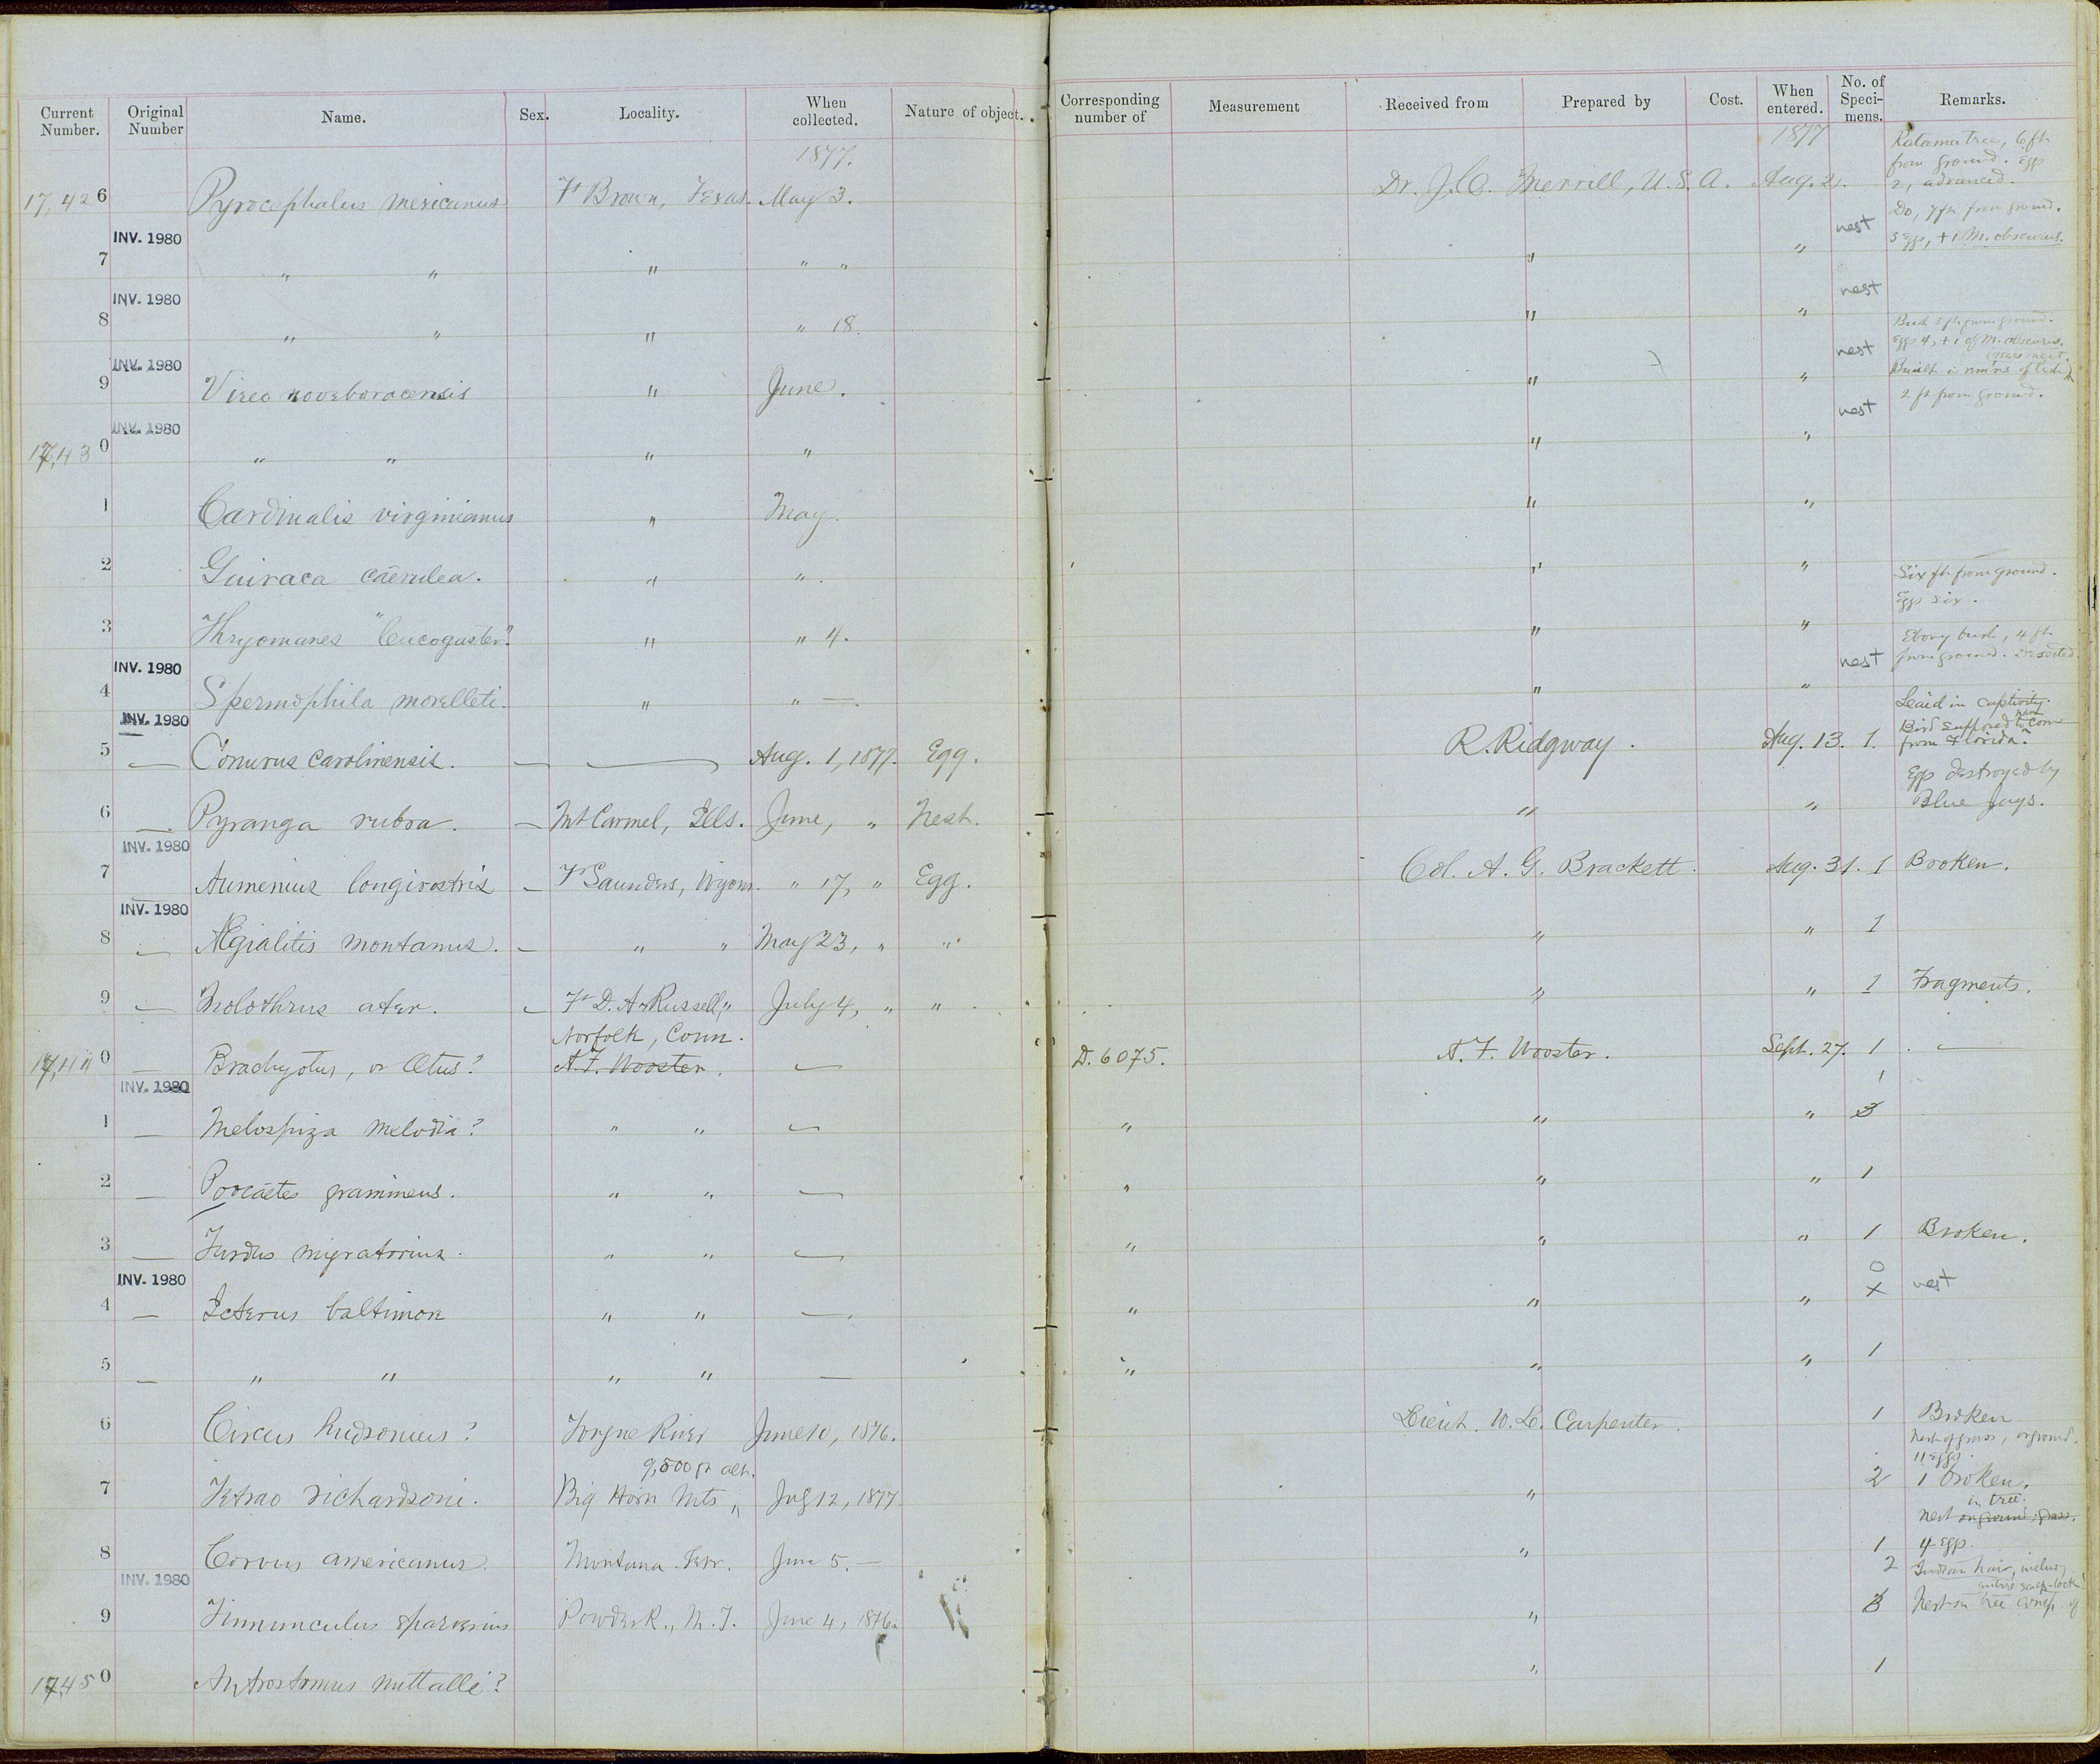 Current Number. Original Number Name. Sex. Locality. When collected. Nature of object. Corresponding number of Measurement Received from Prepared by Cost. When entered. No. of Speci-mens. Remarks.
1877. 1877 tree, 6 ft.
from ground. Egg
17,426 Pyrocephalus mexicanus Ft Brown, Texas. May 3. Dr. J. C. Merrill, U.S.A. Aug. 2. 2, advanced.
INV. 1980 nest Do, 7 ft from ground.
3 Eggs, + 1 M. obscurus.
7 " " " " " " "
INV. 1980 nest
8 " " " " 18. " "
INV. 1980 nest Bush 5 ft from ground.
Eggs 4, + 1 of M. obscurus.
9 Vireo noveboracensis " June. " " Built in
INV. 1980 nest 2 ft from ground.
17,430 " " " " " "
1 Cardinalis virginianus " May. " "
2 Guiraca caerulea. " " " " Six ft from ground.
Eggs six.
3 Thryomanes "leucogaster." " " 4. " " Ebony bush, 4 ft
INV. 1980 nest from ground. Deserted.
4 Spermophila morelleti. " " — " "
INV. 1980 Laid in captivity.
5 — Conurus carolinensis. — — Aug. 1, 1877. Egg. R. Ridgway. Aug. 13. 1. Bird supposed to have come from Florida.
6 — Pyranga rubra. — Mt Carmel, Ills. June, " Nest. " " Eggs destroyed by Blue Jays.
INV. 1980
7 Numenius longirostris — Ft Saunders, Wyom. " 17, " Egg. Col. A. G. Brackett. Aug. 31. 1 Broken.
INV. 1980
8 — Ægialitis montanus. — " " May 23, " " " " 1
9 — Molothrus ater. — Ft D. A. Russell, " July 4, " " " " 1 Fragments.
Norfolk, Conn.
17,440 — Brachyotus, or Otus? A. F. Wooster. — D. 6075. A. F. Wooster. Sept. 27. 1 —
INV. 1980 1
1 — Melospiza melodia? " " — " " " 3
2 — Poocaetes gramineus. " " — " " " 1
3 — Turdus migratorius. " " — " " " 1 Broken.
INV. 1980 0
4 — Icterus baltimore " " — " " " nest
5 — " " " " — " " " 1
6 Circus hudsonius? Tongue River June 10, 1876. Lieut. W. L. Carpenter. 1 Broken
9,500 ft alt. Nest of grass, on ground. 11 Eggs.
7 Tetrao richardsoni. Big Horn Mts " July 12, 1877. " 2 1 broken.
in tree.
Nest on ground, grass.
8 Corvus americanus. Montana Terr. June 5. — " 1 4 Eggs.
INV. 1980 2 Indian hair, includ.
entire scalp-lock.
9 Tinnunculus sparverius Powder R., M.T. June 4, 1876. " 3 Nest in tree comp. of
17,450 Antrostomus nuttalli? " 1